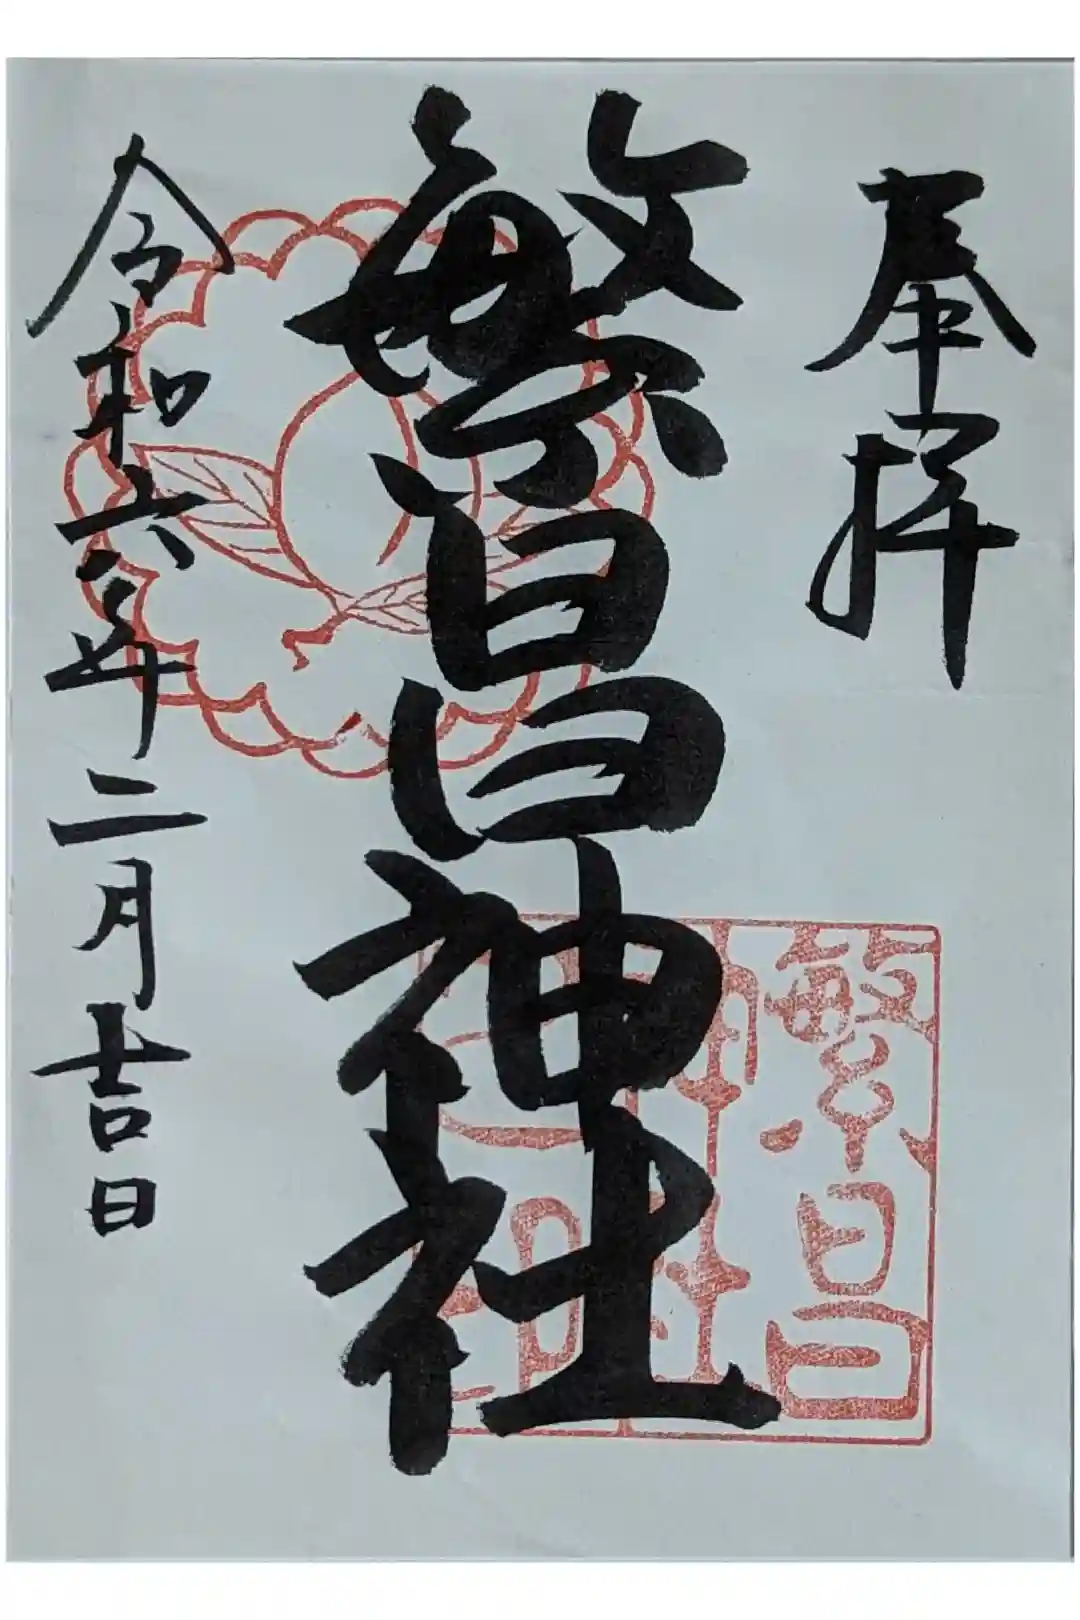 奉拝
繁昌神社
令和六年二月吉日
繁昌
神社